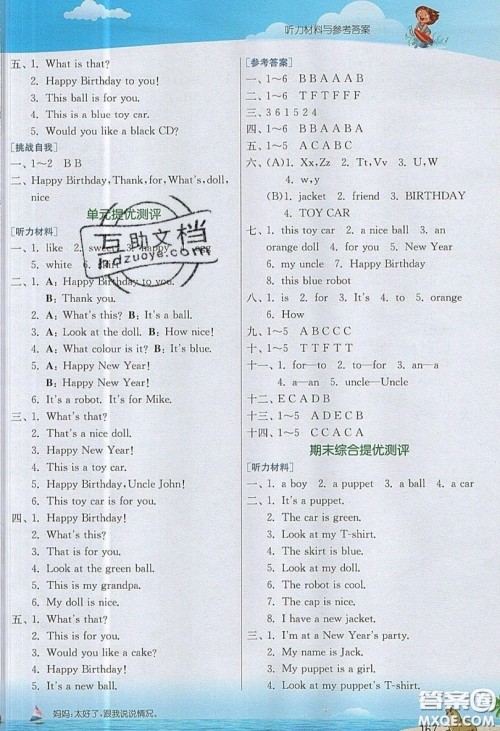 听力材料与参考答案
五、1. What is that?
2. Happy Birthday to you!
3. This ball is for you.
4. This is a blue toy car.
5. Would you like a black CD?
[挑战自我]
一、1～2 B B
二、Happy Birthday, Thank, for, What's, doll,
nice
单元提优测评
[听力材料]
一、1. like 2. sweet 3. happy
5. white 6.
二、1. A: Happy Birthday to you.
B: Thank you.
2. A: What's this? B: It's a ball.
3. A: Look at the doll. B: How nice!
4. A: What colour is it? B: It's blue.
5. A: Happy New Year!
B: Happy New Year!
6. It's a robot. It's for Mike.
三、1. What's that?
2. That's a nice doll.
3. Happy New Year!
4. This is a toy car.
5. Happy Birthday, Uncle John!
6. This toy car is for you.
四、1. Happy Birthday!
2. What's this?
3. This is for you.
4. Look at the green ball.
5. This is my grandpa.
6. My doll is nice.
五、1. What's that?
2. This is for you.
3. Would you like a cake?
4. Happy Birthday to you.
5. This is a ball.
[参考答案]
一、1～6 B B A A A B
二、1～6 T F T F F F
三、3 6 1 5 2 4
四、1～6 B B A A A B
五、1～5 A C A B C
六、(A) 1. Xx, Zz 2. Tt, Vv 3. u, W
4. w, y
(B) 1. jacket 2. friend 3. BIRTHDAY
4. TOY CAR
七、1. this ball 2. a nice ball 3. an
orange doll 4. for you 5. New Year
6. my uncle 7. Happy Birthday
8. this blue robot
八、1. is 2. for 3. It's 4. to 5. orange
6. How
九、1～5 C A C C C
十、1～5 T T F T T
十一、1. for—to 2. to—for 3. an—a
4. a—an 5. uncle—Uncle
十二、E C A D B
十三、1～5 A D E C B
十四、1～5 C C A C A
期末综合提优测评
[听力材料]
一、1. a boy 2. a puppet 3. a ball 4. a car
二、1. It's a puppet.
2. The car is green.
3. Look at my T-shirt.
4. The skirt is blue.
5. Look at my doll.
6. The robot is cool.
7. The cap is nice.
8. I have a new jacket.
三、1. I'm at a New Year's party.
2. My name is a puppet.
3. My puppet is a girl.
4. Look at the puppet's T-shirt.
互助文档
hdzuoye.com
妈妈：太好了，跟我说说情况。
167
答案圈
MXQE.COM